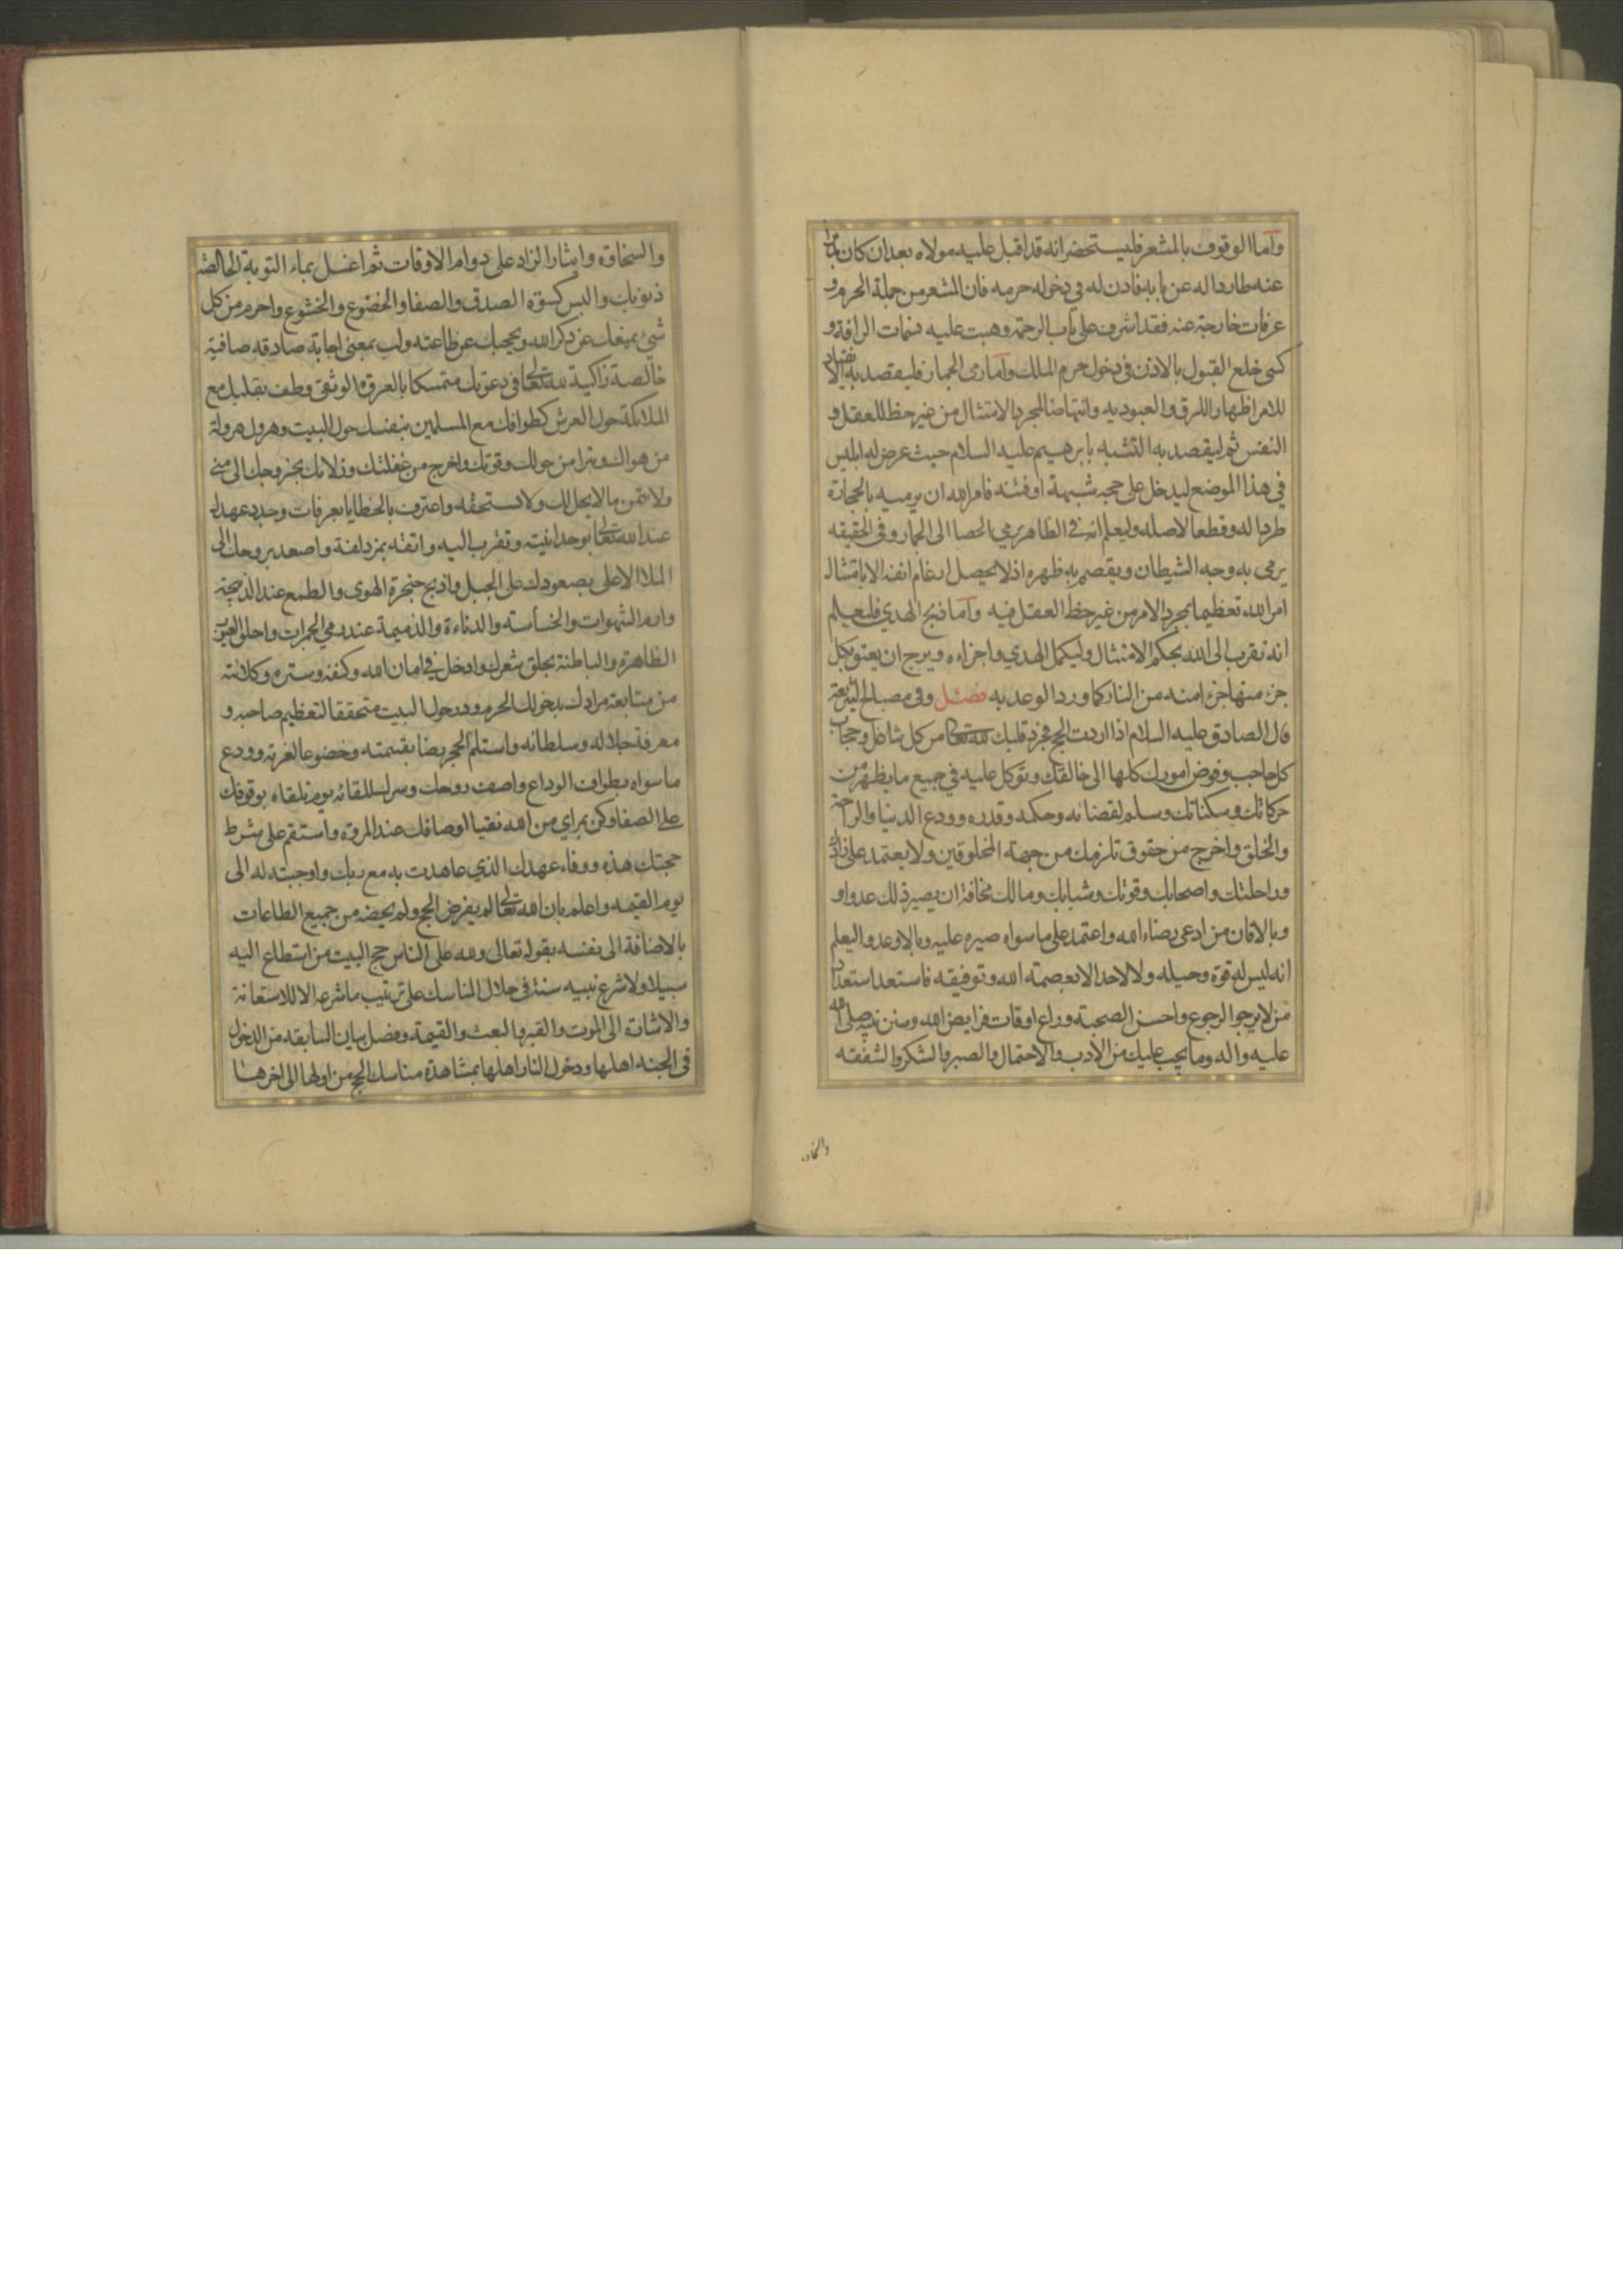 واما الوقوف بالمشعر فليستحضر انه قد اقبل عليه مولاه بعد ان كان مدبرا
عنه طاردا له عن بابه فاذن له في دخوله حرمه فان المشعر من جملة الحرم و
عرفات خارجة عنه فقد اشرف على باب الرحمة وهبت عليه نسمات الرافة و
كسى خلع القبول بالاذن في دخول حرم الملك واما رمى الجمار فليقصد به الانقياد
للامر اظهارا للرق والعبوديه وانتهاضا لمجرد الامتثال من غير حظ للعقل و
النفس ثم ليقصد به التشبه بابرهيم عليه السلام حيث عرض له ابليس
في هذا الموضع ليدخل على حجه شبهة او فتنه فامر الله ان يرميه بالحجارة
طردا له وقطعا لاصله وليعلم انه في الظاهر يرمي الحصا الى الجمار وفى الحقيقه
يرمى به وجه الشيطان ويقصم به ظهره اذ لا يحصل ارغام انفه الا بامتثال
امر الله تعظيما بمجرد الامر من غير حظ العقل فيه واما ذبح الهدي فليعلم
انه تقرب الى الله بحكم الامتثال وليكمل الهدي واجزاءه ويرج ان يعتق بكل
جزء منها جزءا منه من النار كما ورد الوعد به فصل وفي مصباح الشريعة
قال الصادق عليه السلام اذا اردت الحج فجرد قلبك لله تعالى من كل شاغل وحجاب
كل حاجب وفوض امورك كلها الى خالقك وتوكل عليه في جميع ما يظهر من
حركاتك وسكناتك وسلم لقضائه وحكمه وقدره وودع الدنيا والراحة
والخلق واخرج من حقوق تلزمك من جهة المخلوقين ولا يعتمد على زادك
وراحلتك واصحابك وقوتك وشبابك ومالك مخافة ان يصير ذلك عدوا و
وبالا فان من ادعى رضاء الله واعتمد على ما سواه صيره عليه وبالا وعدوا ليعلم
انه ليس له قوة وحيله ولا لاحد الا بعصمته الله وتوفيقه فاستعد استعداد
من لا يرجوا الرجوع واحسن الصحبة وراع اوقات فرايض الله وسنن نبيه صلى الله
عليه واله وما يجب عليك من الادب والاحتمال والصبر والشكر والشفقه
والسخاوة
والسخاوة وايثار الزاد على دوام الاوقات ثم اغسل بماء التوبة الخالصة
ذنوبك والبس كسوة الصدق والصفا والخضوع والخشوع واحرم من كل
شيء يمنعك عن ذكر الله ويحجبك عن طاعته ولب بمعنى اجابة صادقه صافية
خالصة زاكية لله تعالى في دعوتك متمسكا بالعروة الوثقى وطف بقلبك مع
الملائكة حول العرش كطوافك مع المسلمين بنفسك حول البيت وهرول هرولة
من هواك وتبرا من حولك وقوتك واخرج من غفلتك وزلاتك بخروجك الى منى
ولا تتمن ما لا يحل لك ولا تستحقه واعترف بالخطايا بعرفات وجدد عهدك
عند الله تعالى بوحدانيته وتقرب اليه واتقه بمزدلفة واصعد بروحك الى
الملا الاعلى بصعودك على الجبل واذبح حنجرة الهوى والطمع عند الذبيحة
وارم الشهوات والخساسته والدناءة والذميمة عند رمي الجمرات واحلق العيوب
الظاهرة والباطنة بحلق شعرك وادخل في امان الله وكنفه وستره وكلائته
من متابعة مرادك بدخولك الحرم ودر حول البيت متحققا لتعظيم صاحبه و
معرفة جلاله وسلطانه واستلم الحجر رضا بقسمته وخضوعا لعزته وودع
ما سواه بطواف الوداع واصف روحك وسرك للقائه يوم تلقاه بوقوفك
على الصفا وكن بمراي من الله نقيا اوصافك عند المروة واستقم على شرط
حجتك هذه ووفاء عهدك الذي عاهدت به مع ربك واوجبته له الى
يوم القيمه واعلم بان الله تعالى لم يفرض الحج ولم يخصه من جميع الطاعات
بالاضافة الى نفسه بقوله تعالى ولله على الناس حج البيت من استطاع اليه
سبيلا ولا شرع نبيه سنة في خلال المناسك على ترتيب ما شرعه الا للاستعانة
والاشارة الى الموت والقبر والبعث والقيمة وفصل بيان السابقه من الدخول
في الجنه اهلها ودخول النار اهلها بمشاهدة مناسك الحج من اولها الى اخرها